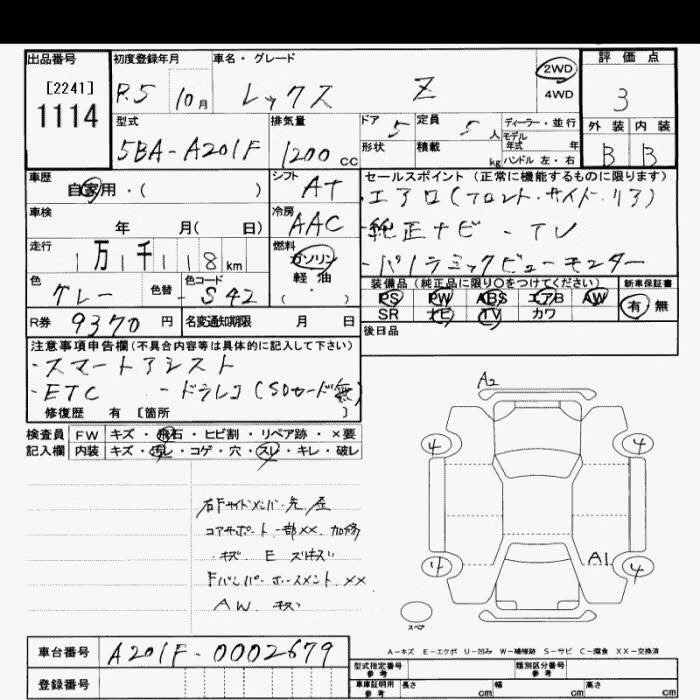 出品番号
[2241]
1114
初度登録年月
R.5 10月
車名・グレード
レックス Z
2WD
4WD
評価点
3
外装 内装
B B
型式
5BA-A201F
排気量
1200 cc
ドア 5
定員 5 人
形状
積載 kg
ディーラー・並行
モデル年式 年
ハンドル 左・右
車歴
自家用・( )
シフト
AT
車検
年 月( 日)
冷房
AAC
走行
1万1千118km
燃料
ガソリン
軽油
( ・ )
色
グレー
色替
色コード
S42
R券 9370 円
名変通知期限 月 日
セールスポイント(正常に機能するものに限ります)
・エアロ(フロント・サイド・リア)
・純正ナビ・TV
・パノラミックビューモニター
装備品(純正品に限り〇をつけてください)
PS PW ABS エアB AW
SR ナビ TV カワ
新車保証書
有 無
後日品
注意事項申告欄(不具合内容等は具体的に記入して下さい)
・スマートアシスト
・ETC ・ドラレコ(SDカード無)
修復歴 有 [箇所 ]
検査員
記入欄
FW キズ・飛石・ヒビ割・リペア跡・×要
内装 キズ・汚レ・コゲ・穴・スレ・キレ・破レ
右Fサイドメンバー先歪
コアサポート一部XX 加修
キズ E ズレキズ
Fバンパーホースメント XX
AW キズ
A2
4 4
4 A1 4
スペア
A-キズ E-エクボ U-凹み W-補修跡 S-サビ C-腐食 XX-交換済
車台番号 A201F-0002679
登録番号
型式指定番号
参考
類別区分番号
参考
車庫証明用
参考
長さ cm 幅 cm 高さ cm